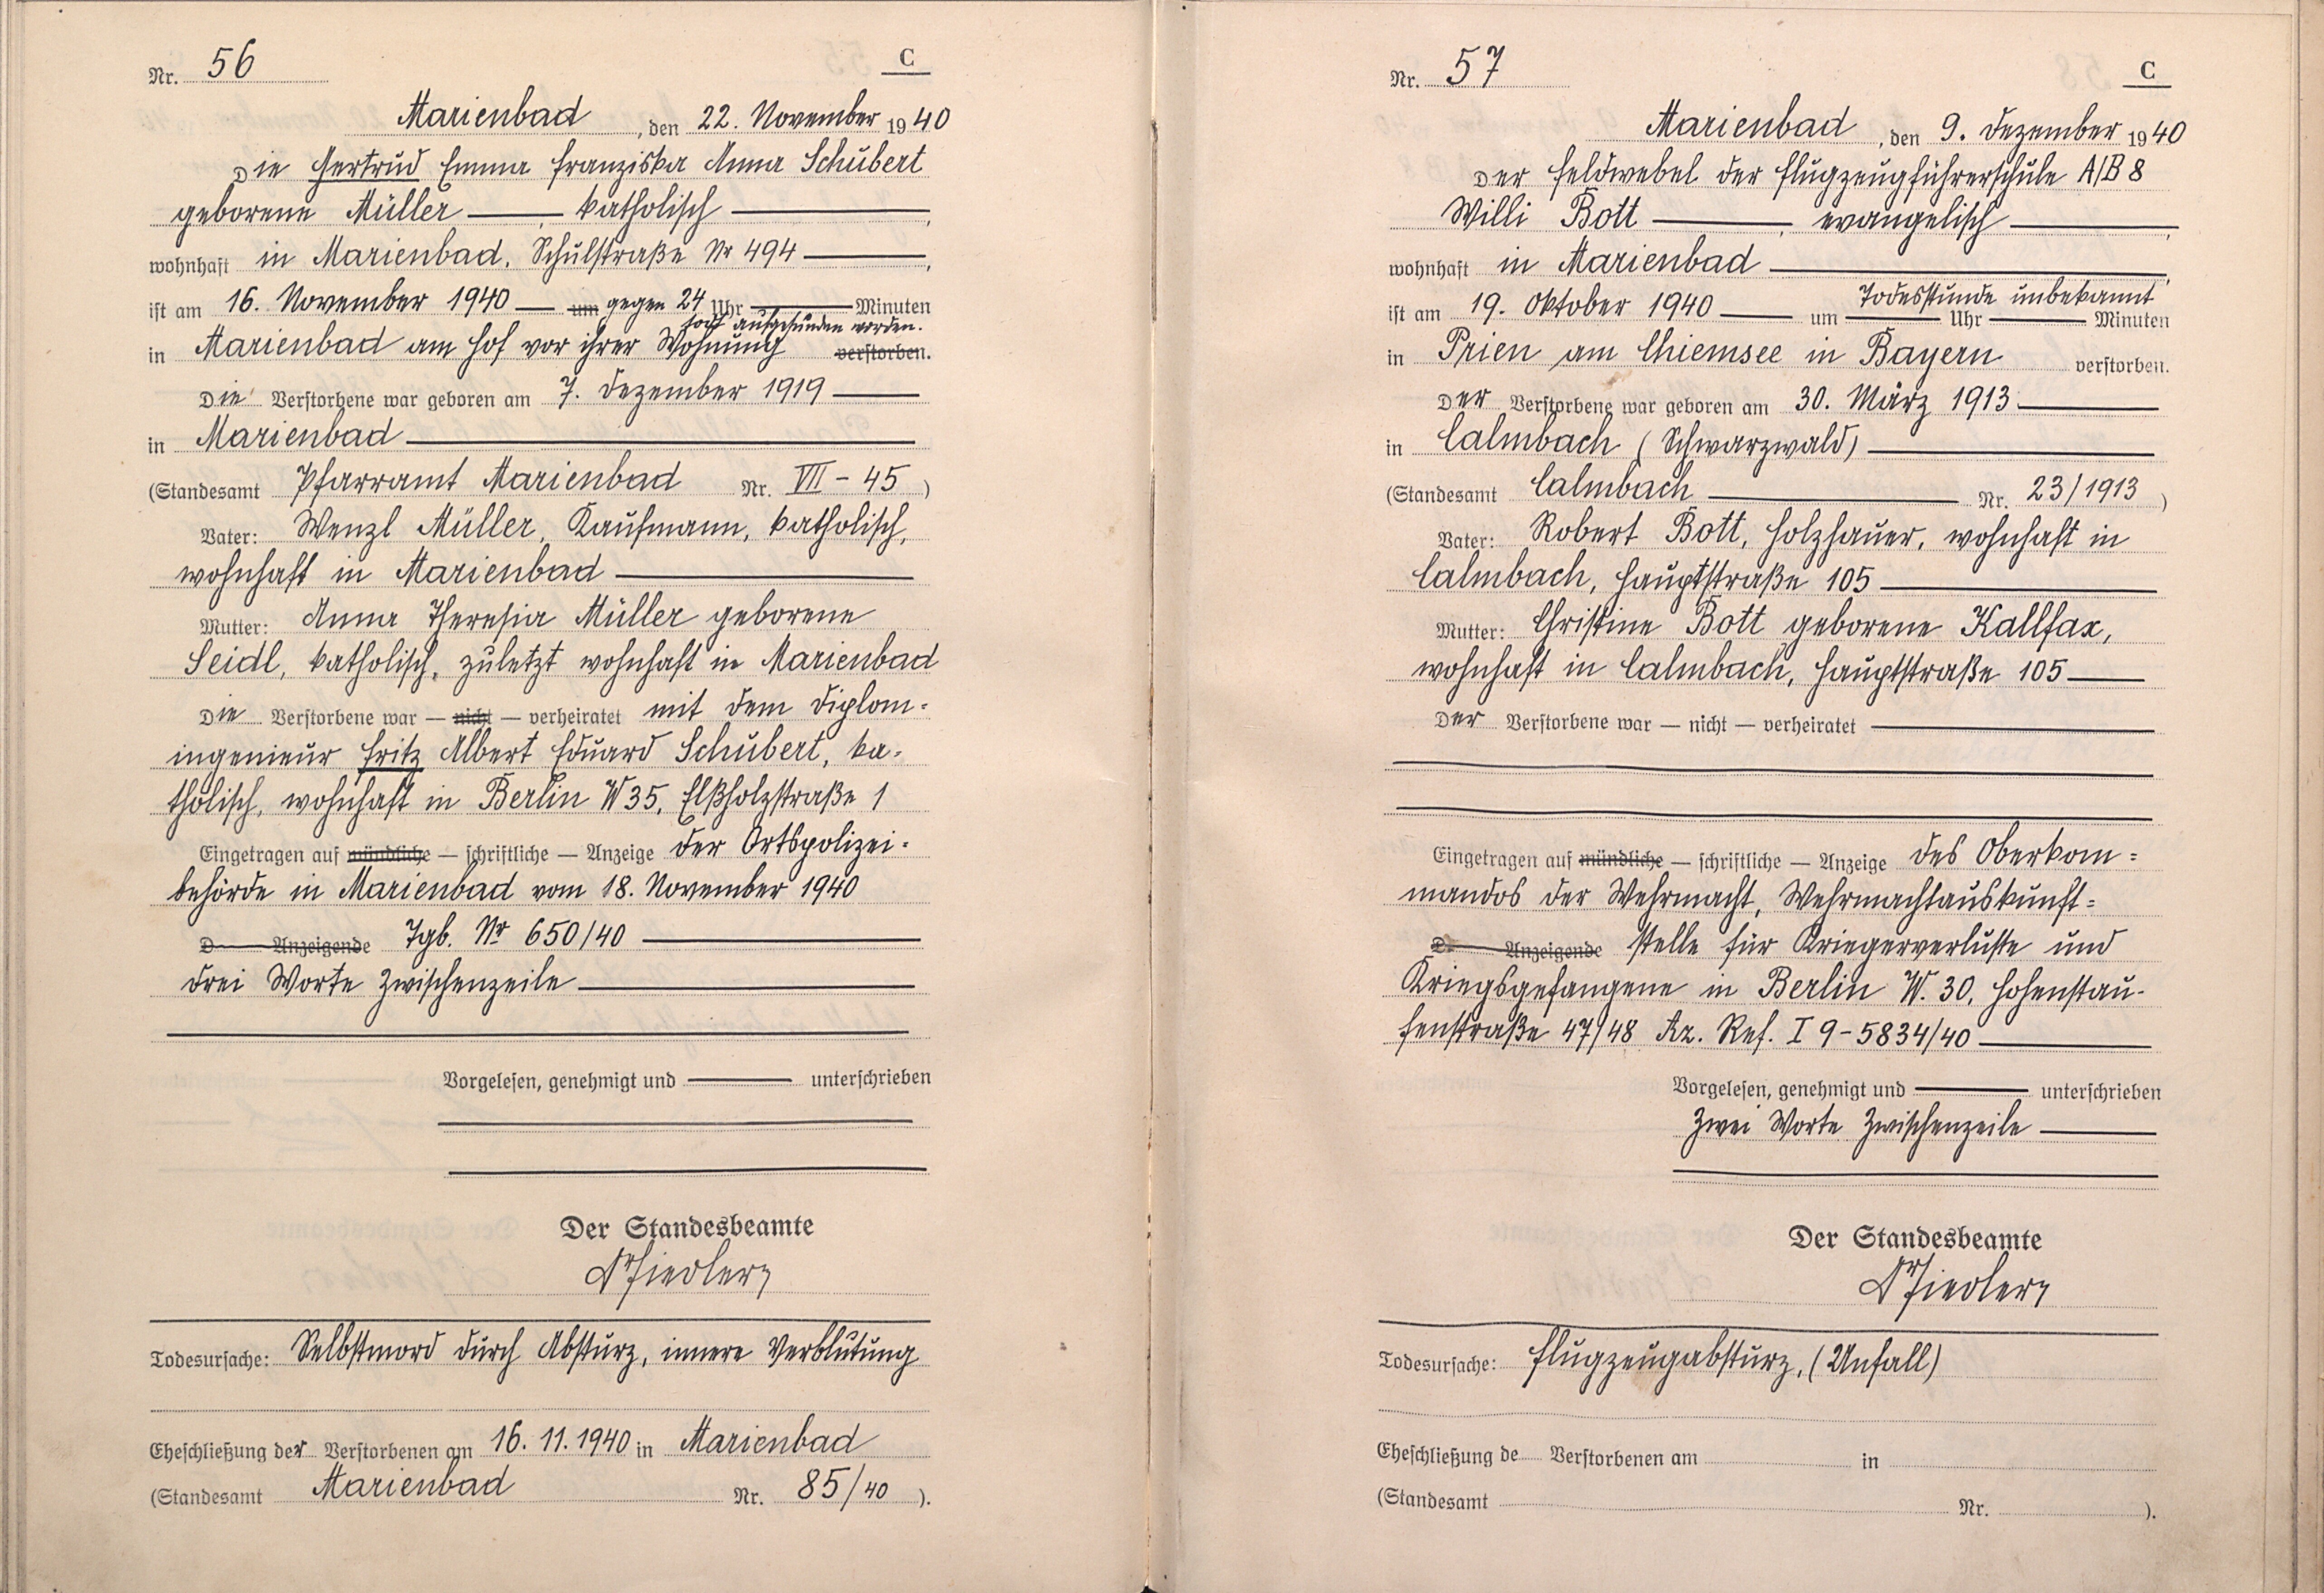 Nr. 56
C
Marienbad, den 22. November 1940
Die Gertrud Emma Franziska Anna Schubert
geborene Müller, katholisch,
wohnhaft in Marienbad, Schulstraße Nr 494,
ist am 16. November 1940 um gegen 24 Uhr Minuten
tot aufgefunden worden.
in Marienbad am Hof vor ihrer Wohnung verstorben.
Die Verstorbene war geboren am 7. Dezember 1919
in Marienbad
(Standesamt Pfarramt Marienbad Nr. VII - 45)
Vater: Wenzl Müller, Kaufmann, katholisch,
wohnhaft in Marienbad
Mutter: Anna Theresia Müller geborene
Seidl, katholisch, zuletzt wohnhaft in Marienbad
Die Verstorbene war — nicht — verheiratet mit dem Diplom-
ingenieur Fritz Albert Eduard Schubert, ka-
tholisch, wohnhaft in Berlin W 35, Elßholzstraße 1
Eingetragen auf mündliche — schriftliche — Anzeige der Ortspolizei-
behörde in Marienbad vom 18. November 1940
D Anzeigende Tgb. Nr 650/40
Drei Worte Zwischenzeile
Vorgelesen, genehmigt und unterschrieben
Der Standesbeamte
Dr Fiedler
Todesursache: Selbstmord durch Absturz, innere Verblutung
Eheschließung der Verstorbenen am 16. 11. 1940 in Marienbad
(Standesamt Marienbad Nr. 85/40).
Nr. 57
C
Marienbad, den 9. Dezember 1940
Der Feldwebel der Flugzeugführerschule A/B 8
Willi Bott, evangelisch,
wohnhaft in Marienbad,
Todesstunde unbekannt
ist am 19. Oktober 1940 um Uhr Minuten
in Prien am Chiemsee in Bayern verstorben.
Der Verstorbene war geboren am 30. März 1913
in Calmbach (Schwarzwald)
(Standesamt Calmbach Nr. 23/1913)
Vater: Robert Bott, Holzhauer, wohnhaft in
Calmbach, Hauptstraße 105
Mutter: Christine Bott geborene Kallfax,
wohnhaft in Calmbach, Hauptstraße 105
Der Verstorbene war — nicht — verheiratet
Eingetragen auf mündliche — schriftliche — Anzeige des Oberkom-
mandos der Wehrmacht, Wehrmachtauskunft-
D Anzeigende stelle für Kriegerverluste und
Kriegsgefangene in Berlin W. 30, Hohenstau-
fenstraße 47/48 Az. Ref. I 9 - 5834/40
Vorgelesen, genehmigt und unterschrieben
Zwei Worte Zwischenzeile
Der Standesbeamte
Dr Fiedler
Todesursache: Flugzeugabsturz, (Unfall)
Eheschließung de Verstorbenen am in
(Standesamt Nr. ).